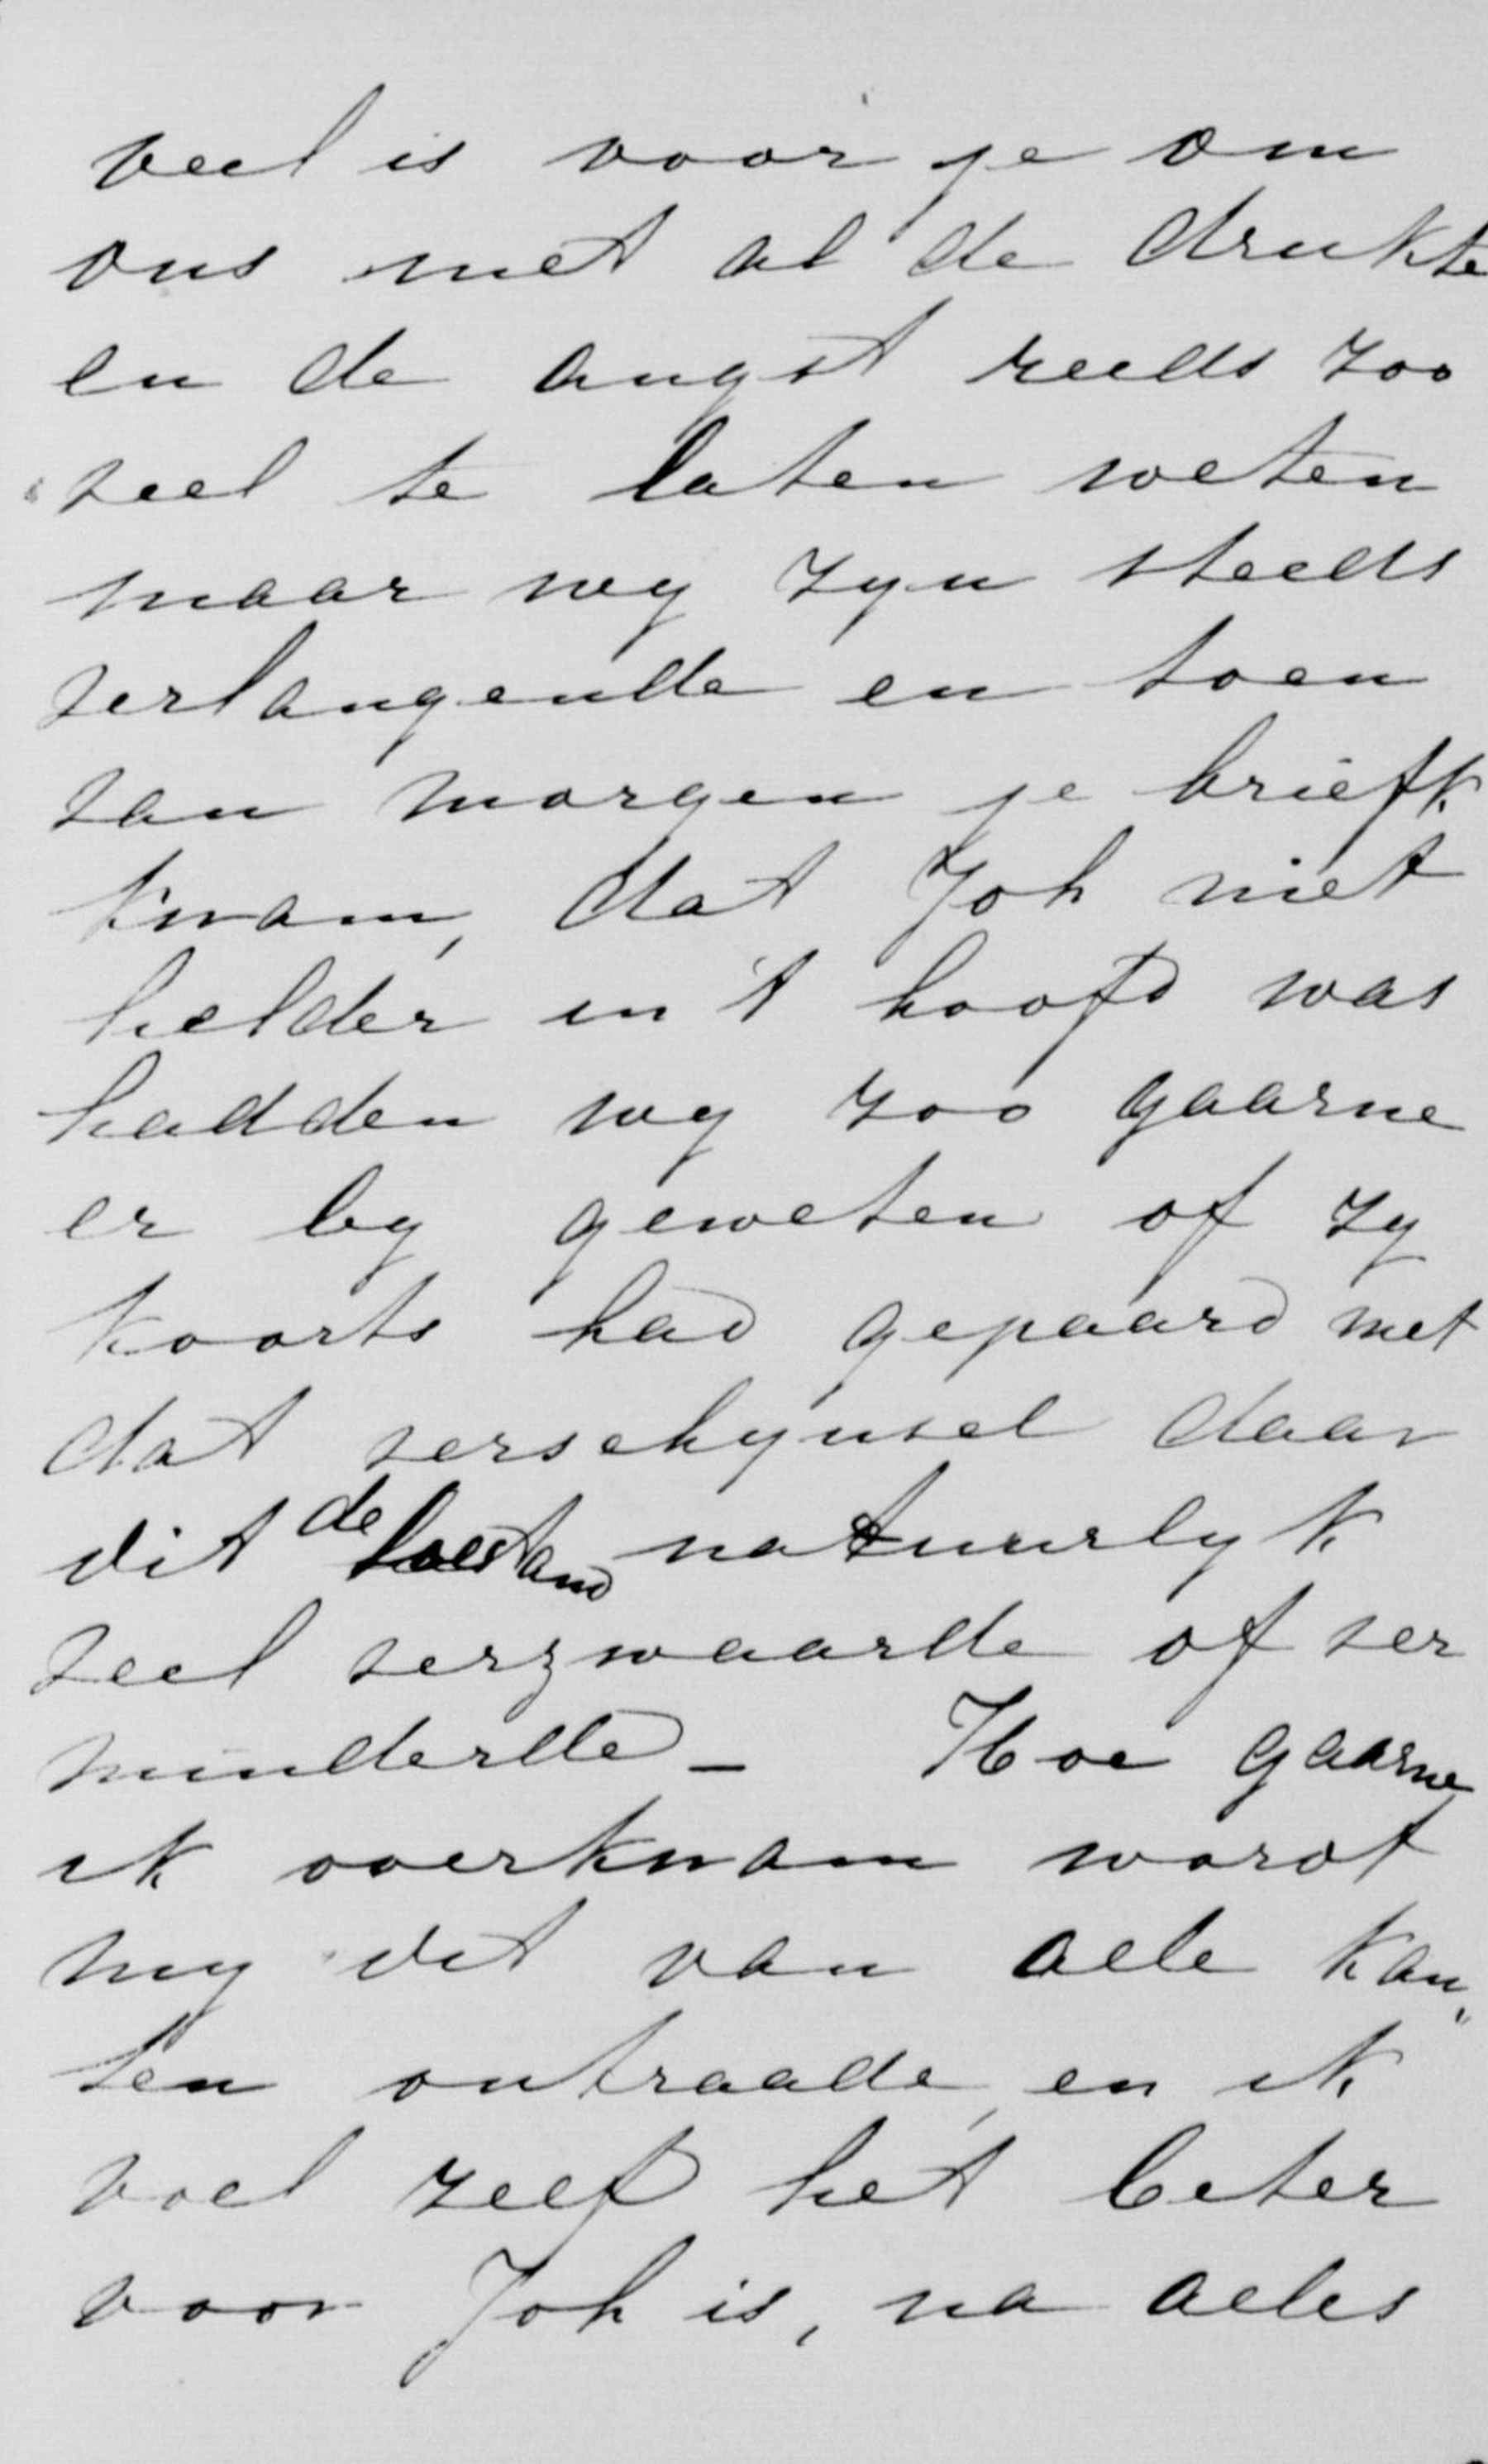 veel is voor je om
ons met al de drukte
en de angst reeds zoo
veel te laten weten
maar wy zyn steeds
verlangende en toen
van morgen je briefk.
kwam, dat Joh niet
helder in 't hoofd was
hadden wy zoo gaarne
er by geweten of zy
koorts had gepaard met
dat verschynsel daar
dit de toestand natuurlyk
veel verzwaarde of ver
minderde – Hoe gaarne
ik overkwam wordt
my dit van alle kan„
ten ontraade, en ik
voel zelf het beter
voor Joh is, na alles